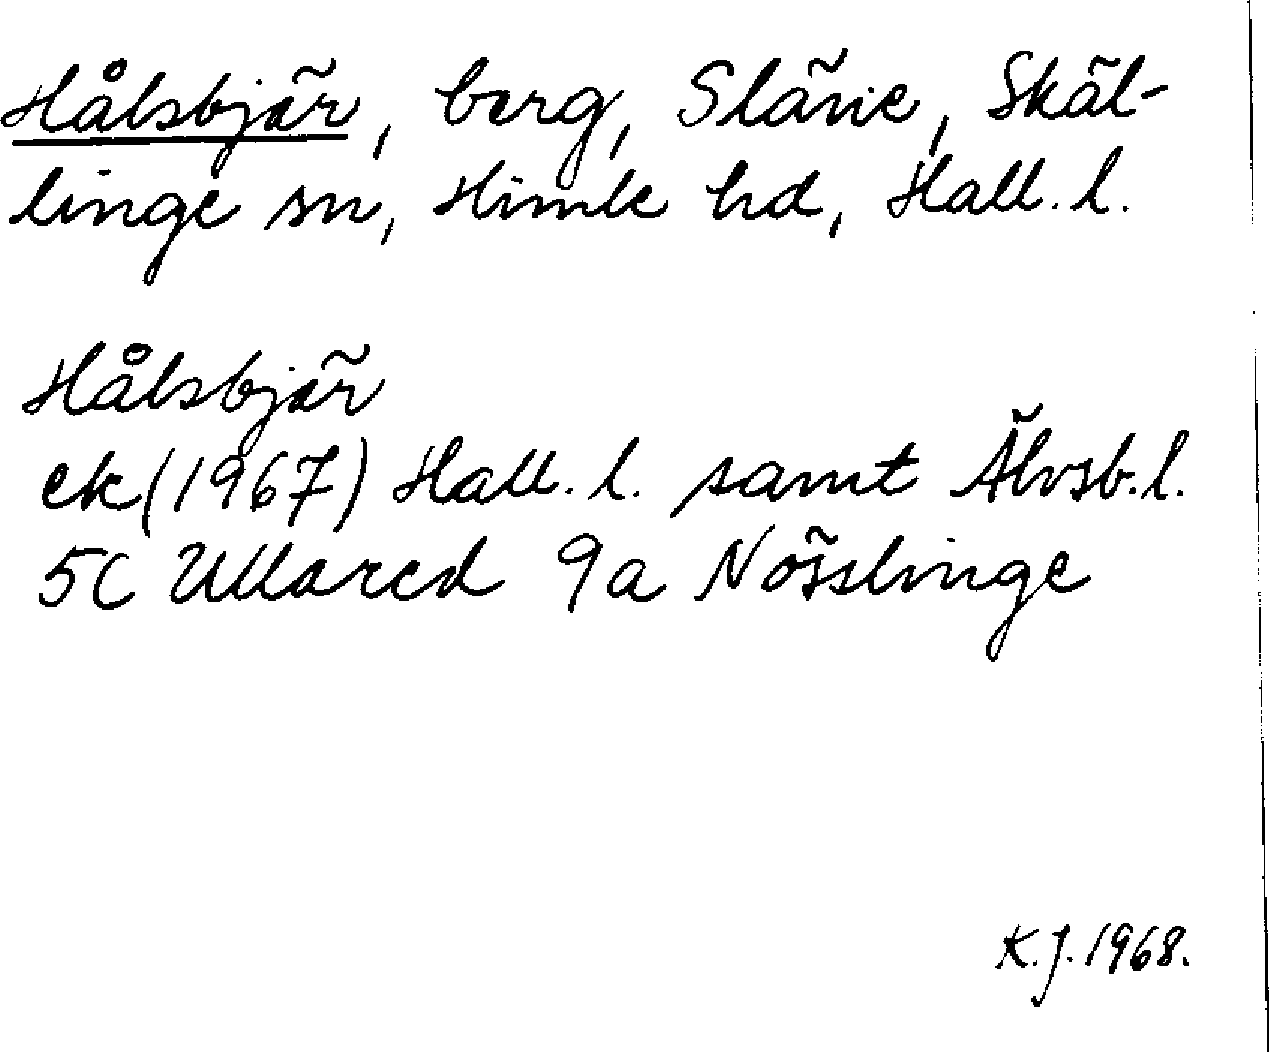 Hålsbjär, berg, Släne, Skäl-
linge sn, Himle hd, Hall. l.
Hålsbjär
ek (1967) Hall. l. samt Älvsb. l.
5C Ullared 9a Nösslinge
K.J. 1968.